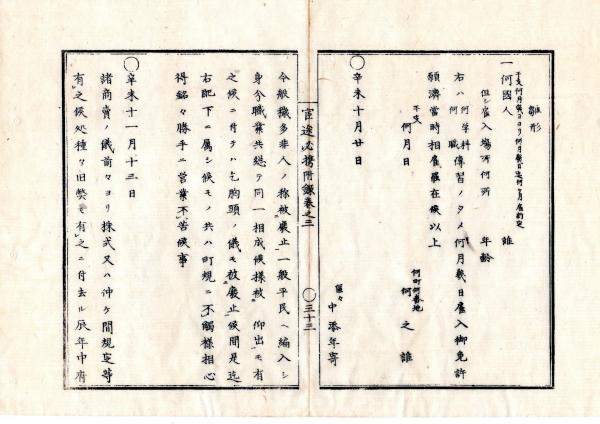 雛形
干支何月幾日ヨリ何月幾日迄何ヶ月雇約定
一何國人 誰
但シ雇入場所何所 年齡
右ハ何學科何職傳習ノタメ何月幾日雇入御免許
願濟當時相雇罷在候以上
干支
何月日 何町何番地 何之誰
區々
中添年寄
〇辛未十月廿日
官途必携附錄卷之三 〇三十三
今般穢多非人ノ称被廢止一般平民ヘ編入シ
身分職業共総テ同一相成候様被 仰出モ有
之候ニ付テハ乞胸頭ノ儀モ被廢止候間是迄
右配下ニ属シ候モノ共ハ町規ニ不觸様相心
得銘々勝手ニ営業不苦候事
〇辛未十一月十三日
諸商賣ノ儀前々ヨリ株式又ハ仲ケ間規定等
有之候処種々旧弊モ有之ニ付去ル辰年中府